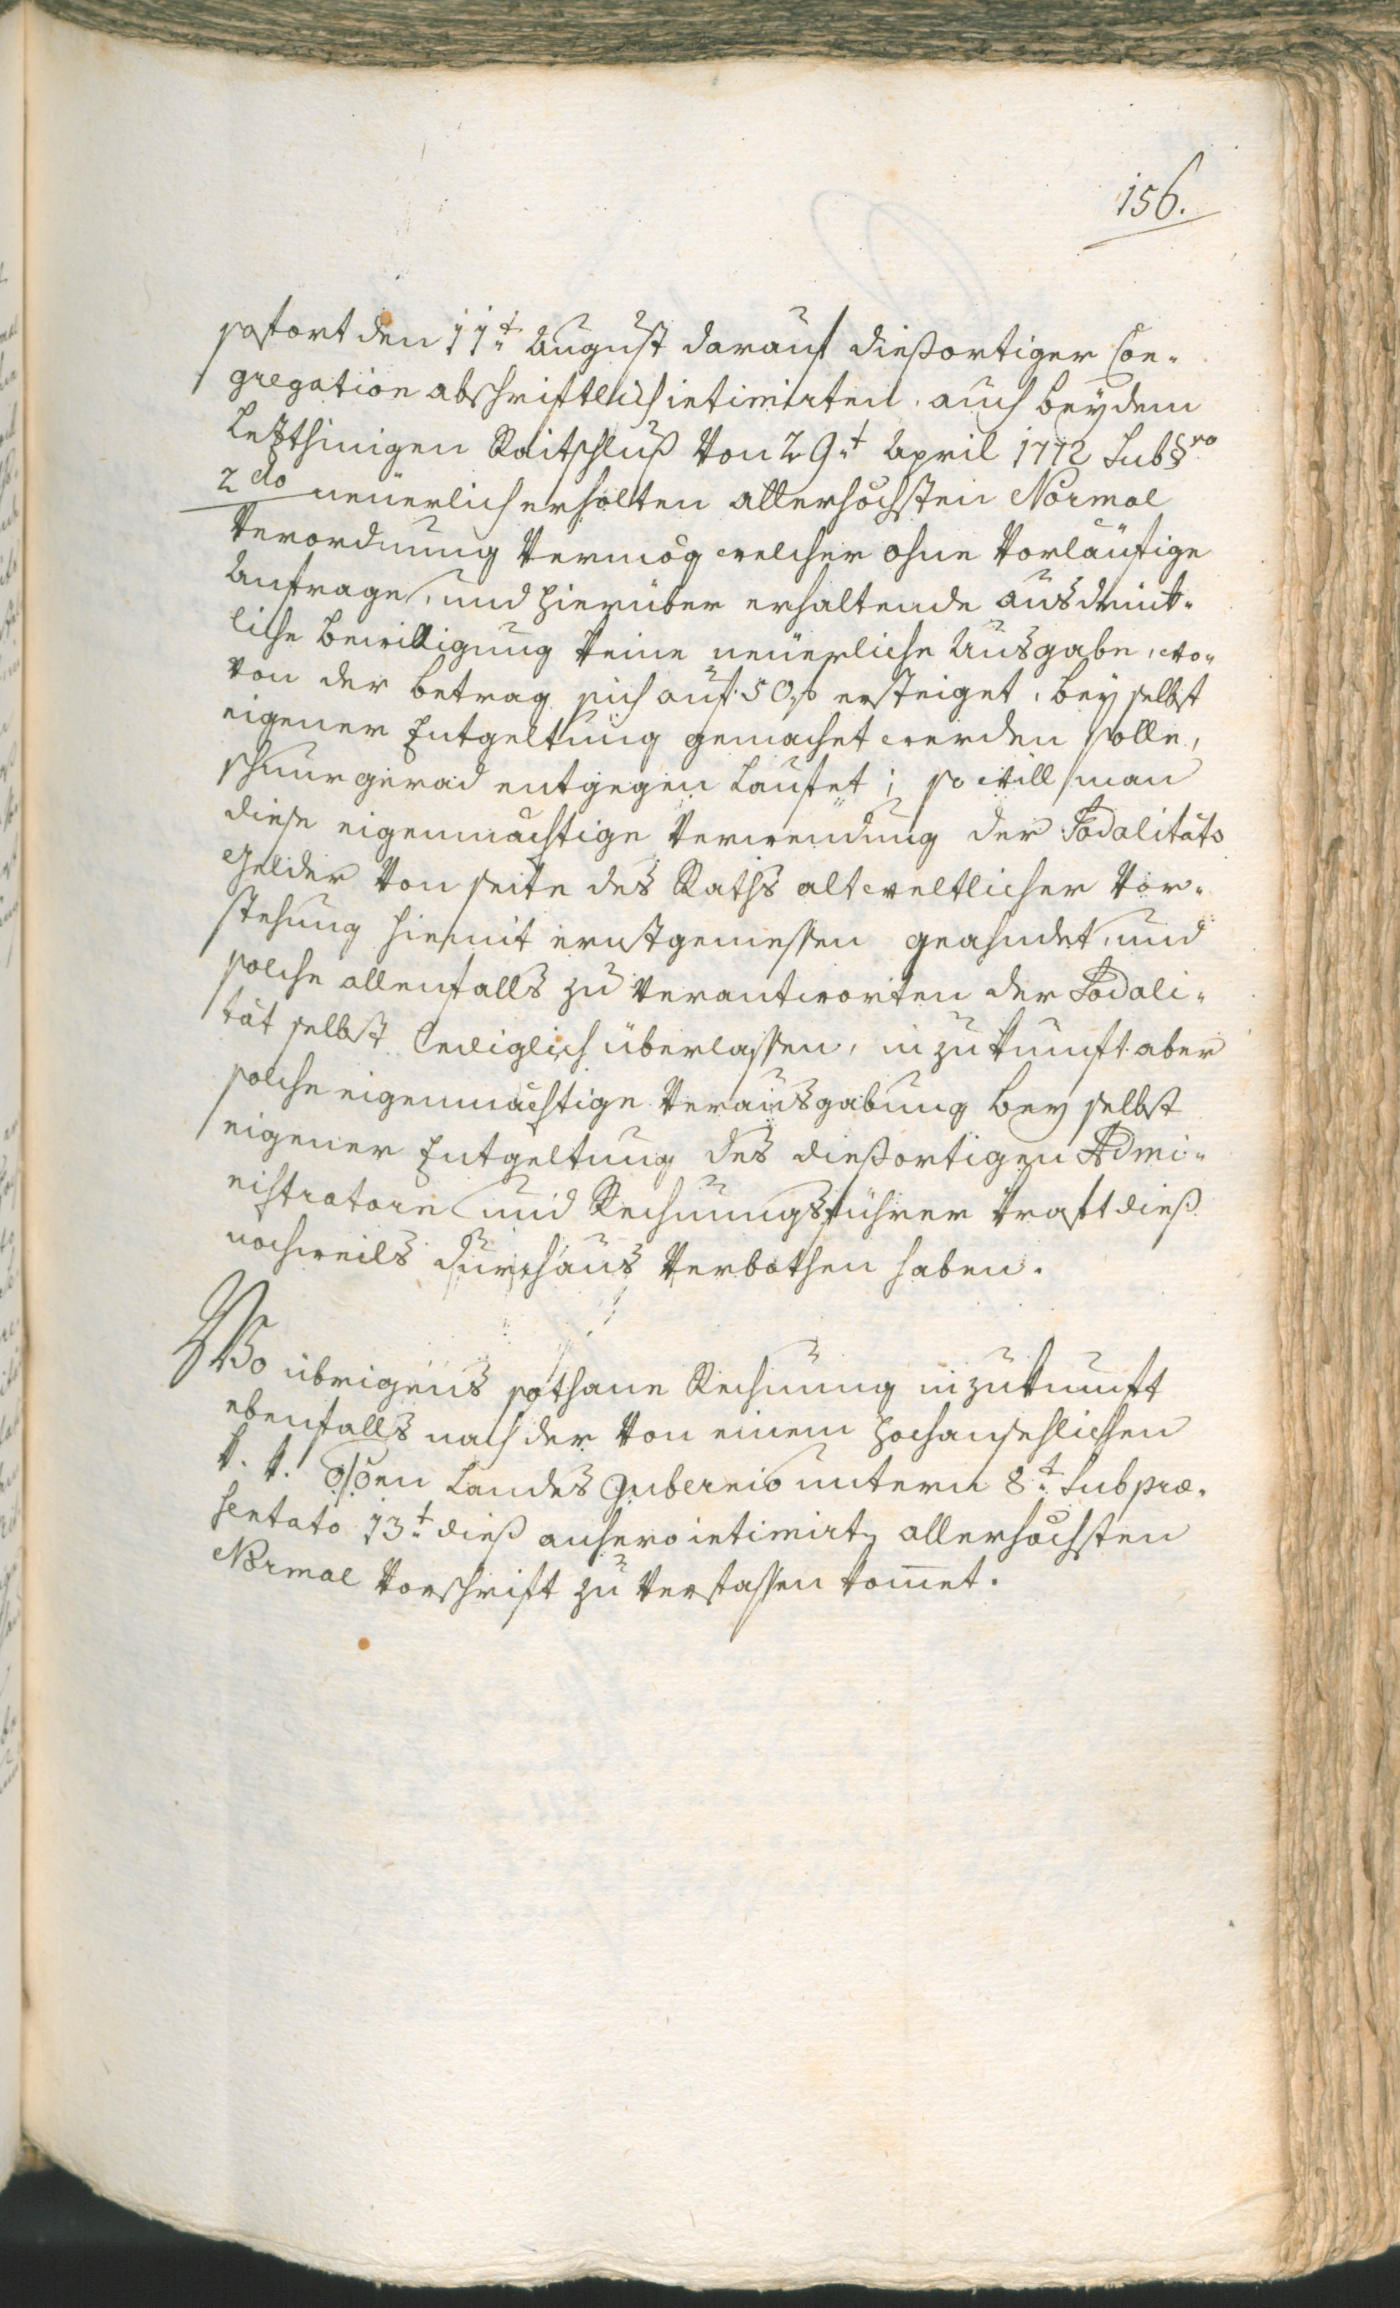 156.
sofort den 11t August darauf dießortiger Con-
gregation abschriftlich intimirten, auch bey dem
Letzthinigen Raitschluß von 29t April 1772 sub §ro
2do neuerlich erholten allerhöchsten Normal
Verordnung vermög welcher ohne vorläufige
Anfrage, und hierüber erhaltende ausdrück-
liche Bewilligung keine neuerliche Ausgabe, wo-
von der Betrag sich auf 50 f ersteiget, bey selbst
eigener Entgeltung gemachet werden solle,
schnur gerad entgegen Laufet; so will man
diese eigenmächtige Verwendung der Sodalitäts
Gelder von seite des Raths alt weltlicher Vor-
stehung hiemit ernstgemessen geahndet, und
solche allenfalls zu verantworten der Sodali-
tät selbst lediglich überlassen, in zukunft aber
solche eigenmächtige Verausgabung bey selbst
eigener Entgeltung des dießortigen Admi-
nistratorn und Rechnungsführer kraft dieß
nochweils durchaus verbothen haben.
Wo übrigens sothane Rechnung in zukunft
ebenfalls nach der von einem hochansehlichen
k. k. oöen Landes Gubernio unterm 8t sub præ-
sentato 13t dieß anhero intimirtn allerhöchsten
Normal Vorschrift zu verfassen kommet.